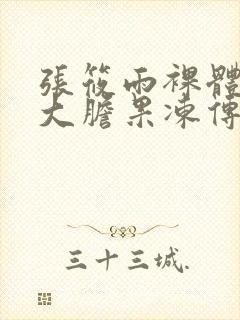 張筱雨裸體
大膽果凍傳
三十三城.